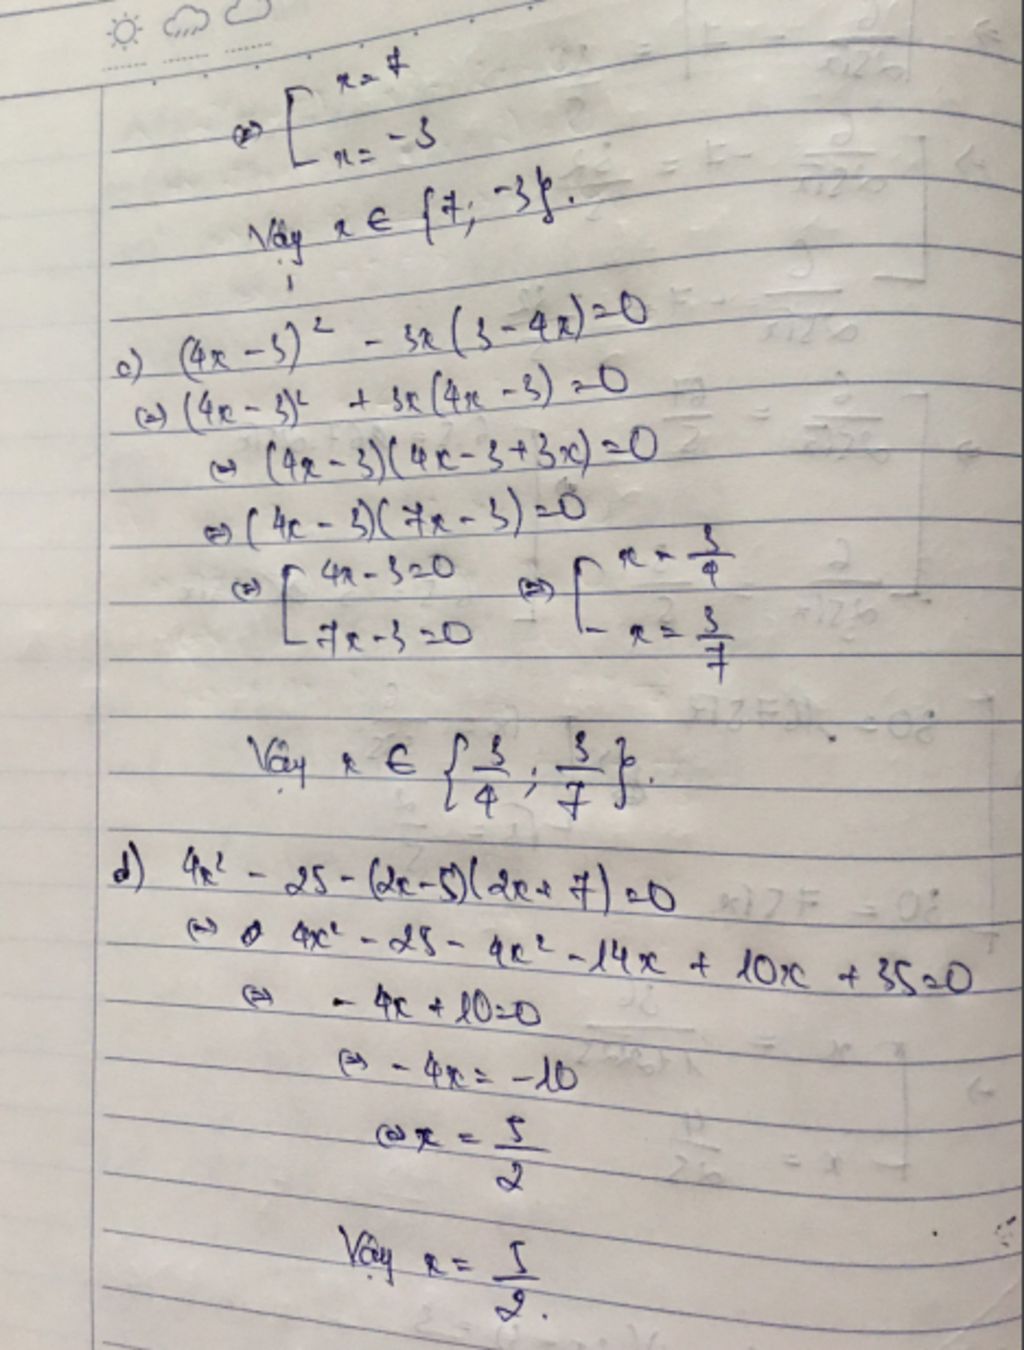 ⇔ [ x = 7
x = -3
Vậy x ∈ {7; -3}.
c) (4x - 3)² - 3x(3 - 4x) = 0
⇔ (4x - 3)² + 3x(4x - 3) = 0
⇔ (4x - 3)(4x - 3 + 3x) = 0
⇔ (4x - 3)(7x - 3) = 0
⇔ [ 4x - 3 = 0 ⇔ [ x = 3/4
7x - 3 = 0 x = 3/7
Vậy x ∈ {3/4; 3/7}.
d) 4x² - 25 - (2x - 5)(2x + 7) = 0
⇔ 4x² - 25 - 4x² - 14x + 10x + 35 = 0
⇔ - 4x + 10 = 0
⇔ - 4x = -10
⇔ x = 5/2
Vậy x = 5/2.